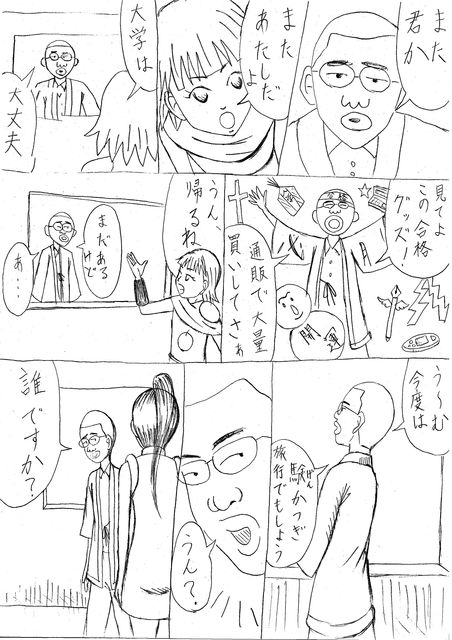 また
君か
また
あたしだ
よ
大学は
大丈夫
見てよ
この合格
グッズ!
通販で大量
買いしてさぁ
うん、
帰るね
まだある
けど
あ…
う〜む
今度は
験かつぎ
げん
旅行でもしよう
うん?
誰ですか?